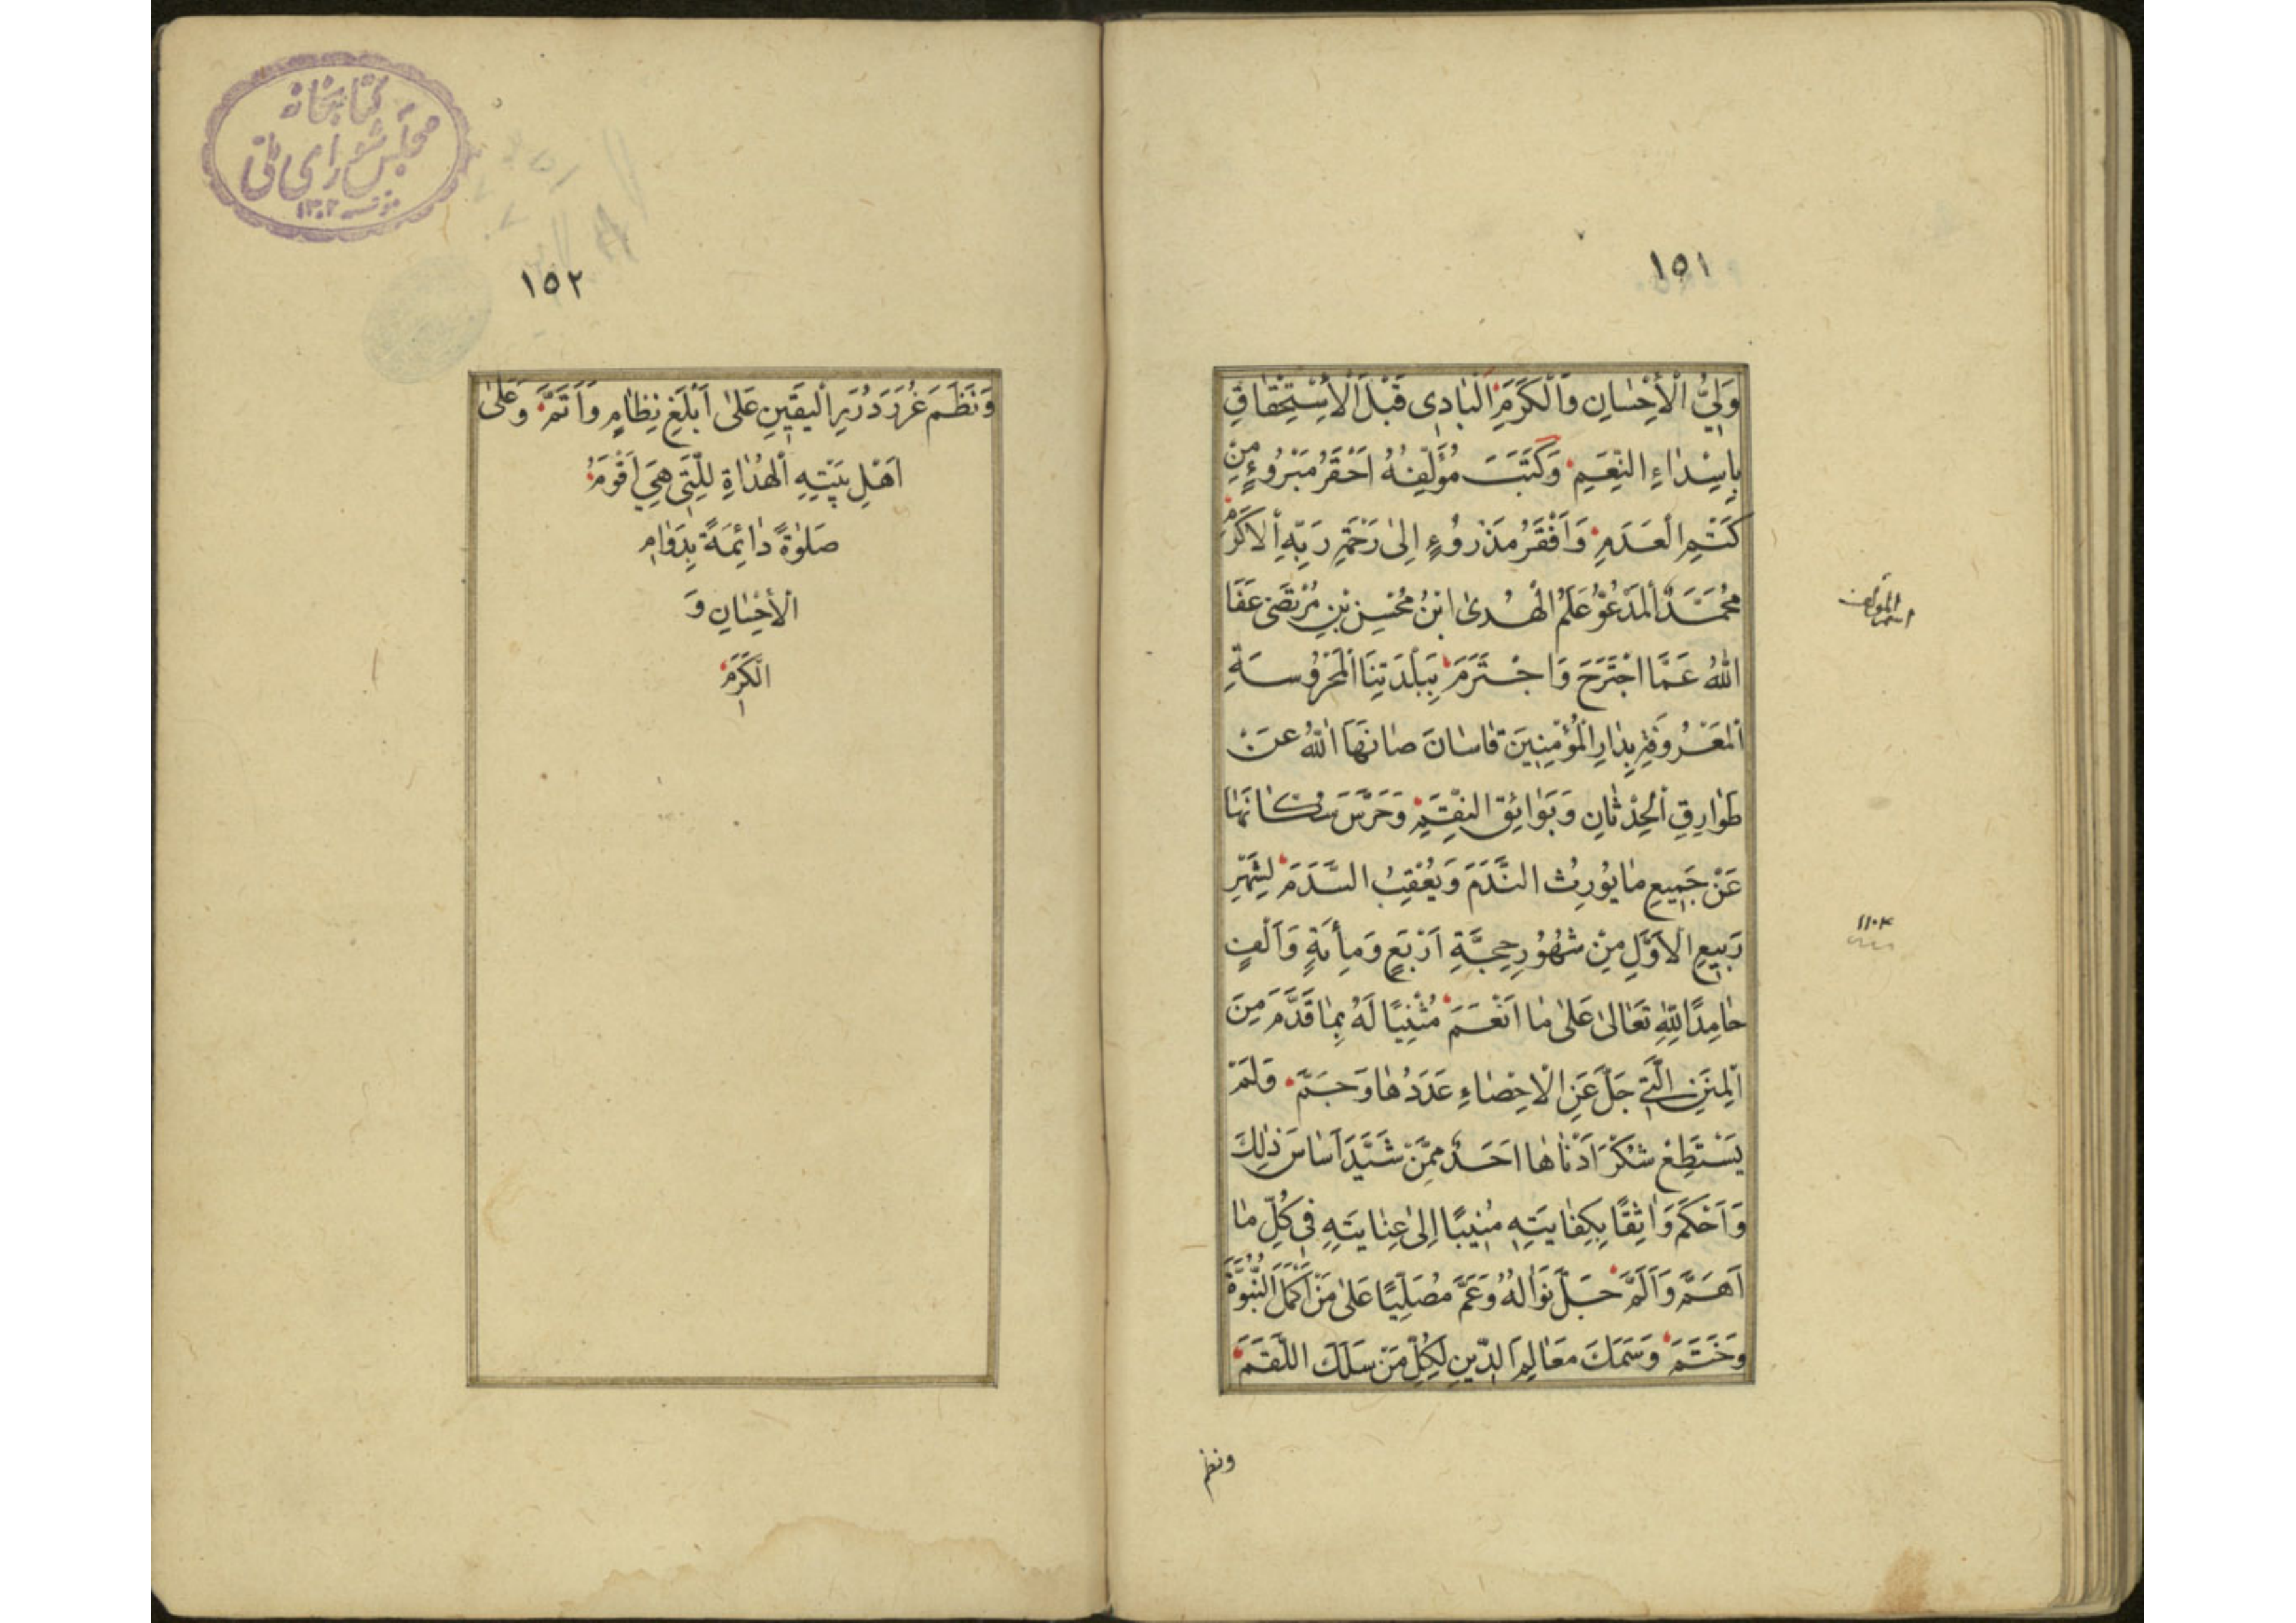 ١٥١
وَلِيُّ الْأِحْسَانِ وَالْكَرَمِ الْبَادِي قَبْلَ الْأِسْتِحْقَاقِ
بِإِسْدَاءِ النِّعَمِ وَكَتَبَ مُؤَلِّفُهُ اَحْقَرُ مَبْرُوءٍ مِنْ
كَتَمِ الْعَدَمِ وَاَفْقَرُ مَذْرُوءٍ اِلىٰ رَحْمَةِ رَبِّهِ الْاَكْرَمِ
مُحَمَّدٌ الْمَدْعُوُّ عَلَمُ الْهُدىٰ ابْنُ مُحْسِنِ بْنِ مُرْتَضىٰ عَفَا
اللّٰهُ عَمَّا اجْتَرَحَ وَاجْتَرَمَ بِبَلْدَتِنَا الْمَحْرُوسَةِ
الْمَعْرُوفَةِ بِدَارِ الْمُؤْمِنِينَ قَاسَانَ صَانَهَا اللّٰهُ عَنْ
طَوَارِقِ الْحِدْثَانِ وَبَوَائِقِ النِّقَمِ وَحَرَسَ سُكَّانَهَا
عَنْ جَمِيعِ مَا يُورِثُ النَّدَمَ وَيُعْقِبُ السَّدَمَ لِشَهْرِ
رَبِيعِ الْاَوَّلِ مِنْ شُهُورِ حِجَّةِ اَرْبَعٍ وَمِأَةٍ وَاَلْفٍ
حَامِدًا لِلّٰهِ تَعَالىٰ عَلىٰ مَا اَنْعَمَ مُثْنِيًا لَهُ بِمَا قَدَّمَ مِنَ
الْمِنَنِ الَّتِي جَلَّ عَنِ الْاِحْصَاءِ عَدَدُهَا وَجَمَّ فَلَمْ
يَسْتَطِعْ شُكْرَ اَدْنَاهَا اَحَدٌ مِمَّنْ شَيَّدَ اَسَاسَ ذٰلِكَ
وَاَحْكَمَ وَاثِقًا بِكِفَايَتِهِ مُنِيبًا اِلىٰ عِنَايَتِهِ فِي كُلِّ مَا
اَهَمَّ وَاَلَمَّ جَلَّ نَوَالُهُ وَعَمَّ مُصَلِّيًا عَلىٰ مَنْ اَكْمَلَ النُّبُوَّةَ
وَخَتَمَ وَسَمَكَ مَعَالِمَ الدِّينِ لِكُلِّ مَنْ سَلَكَ اللَّقَمَ
ونظم
اسم المؤلف
١١٠٤
كتابخانه
مجلس شورای ملی
مؤسسه ١٣٠٢
١٥٢
وَنَظَمَ غُرَرَ دُرَرِ الْيَقِينِ عَلىٰ اَبْلَغِ نِظَامٍ وَاَتَمَّ وَعَلىٰ
اَهْلِ بَيْتِهِ الْهُدَاةِ لِلَّتِي هِيَ اَقْوَمُ
صَلوٰةً دَائِمَةً بِدَوَامِ
الْأِحْسَانِ وَ
الْكَرَمِ